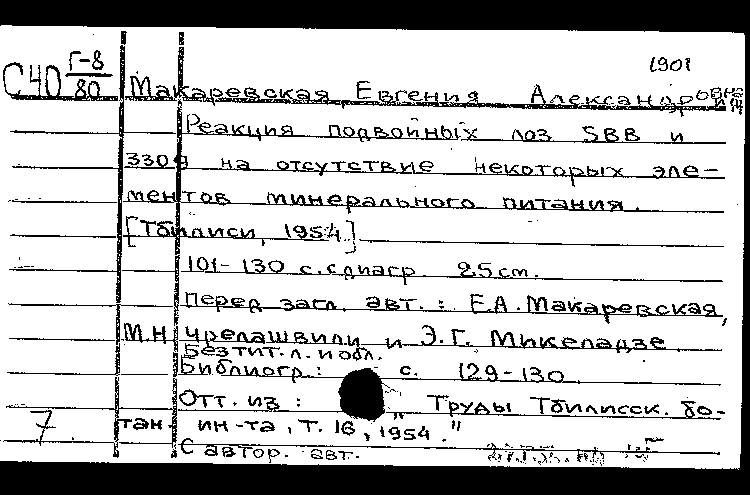 1901
С40 Г-8/80 Макаревская, Евгения Александровна
Реакция подвойных лоз 5ВВ и
3309 на отсутствие некоторых эле-
ментов минерального питания.
[Тбилиси, 1954]
101-130 с.с диагр. 25 см.
Перед загл. авт.: Е.А. Макаревская,
М.Н. Чрелашвили и Э.Г. Микеладзе
Без тит. л. и обл.
Библиогр.: с. 129-130.
Отт. из: „Труды Тбилисск. бо-
тан. ин-та, т. 16, 1954."
7.
С автор. авт.